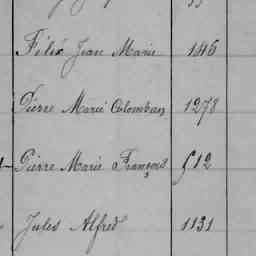 Félix Jean Marie 146
Pierre Marie Colomban 1278
Pierre Marie François 512
Jules Alfred 1131